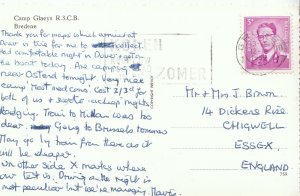 Camp Glaeys R.S.C.B.
Bredene
Thank you for maps which arrived at
Dover in time for me to collect.
Had comfortable night in Dover & got on
the boat today. Are camping
near Ostend tonight. Very nice
camp. Most mod cons. Cost 2/3d for
both of us & scooter - cheap night's
lodging. Train to Milan was too
dear. Going to Brussels tomorrow.
May go by train from there as it
will be cheaper.
On other side X marks where
our tent is. Driving on the right is
not peculiar but we're managing. Mavis.
ZOMER!
Mr & Mrs J. Brown
14 Dickens Rise
CHIGWELL
ESSEX
ENGLAND